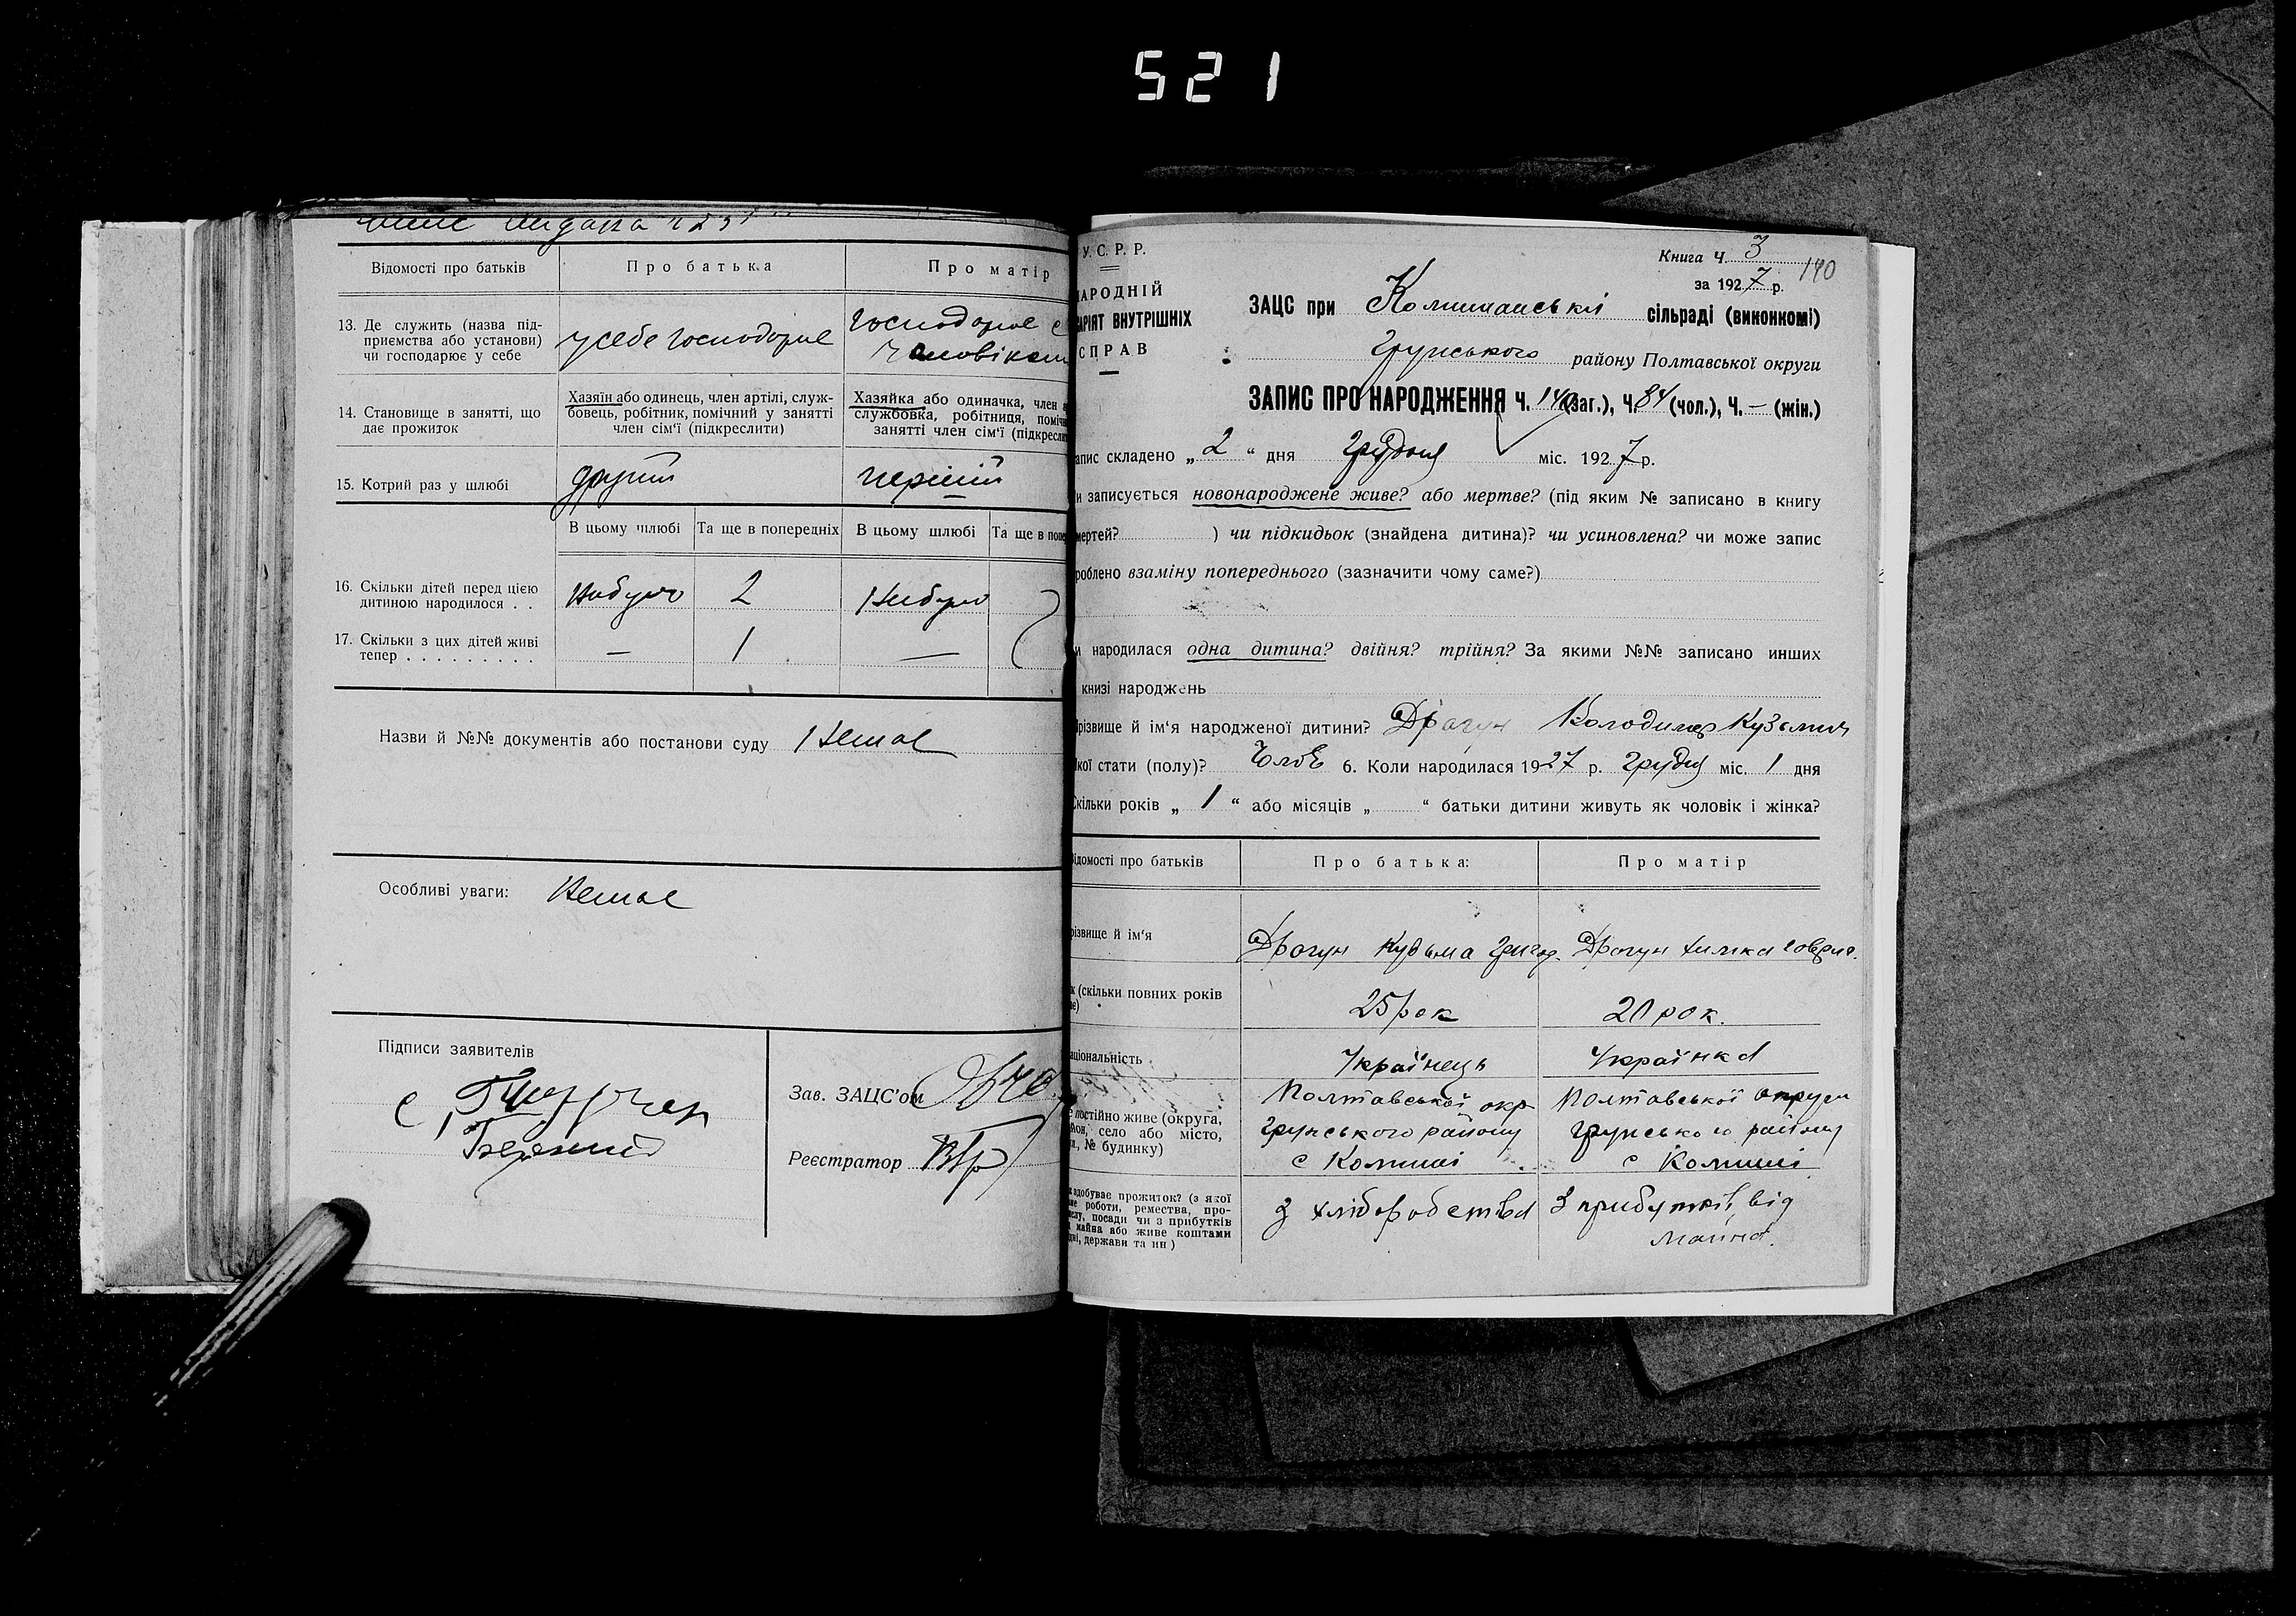 521
Відомості про батьків
Про батька
Про матір
13. Де служить (назва під-
приємства або установи)
чи господарює у себе
у себе господорює
господорює с
чоловіком
14. Становище в занятті, що
дає прожиток
Хазяїн або одинець, член артілі, служ-
бовець, робітник, помічний у занятті
член сім'ї (підкреслити)
Хазяйка або одиначка, член
службовка, робітниця, поміч
занятті член сім'ї (підкресли
15. Котрий раз у шлюбі
другий
перший
В цьому шлюбі
Та ще в попередніх
В цьому шлюбі
Та ще в попе
16. Скільки дітей перед цією
дитиною народилося . .
Небуло
2
Небуло
17. Скільки з цих дітей живі
тепер . . . . . . . . .
—
1
—
Назви й №№ документів або постанови суду Немає
Особливі уваги: Немає
Підписи заявителів
Зав. ЗАЦС'ом
Реєстратор
У. С. Р. Р.
АРОДНІЙ
АРІЯТ ВНУТРІШНІХ
СПРАВ
Книга Ч. 3
140
за 1927 р.
ЗАЦС при сільраді (виконкомі)
Грунського району Полтавської округи
ЗАПИС ПРО НАРОДЖЕННЯ Ч. 140 (заг.), Ч. 84 (чол.), Ч. — (жін.)
апис складено „ 2 “ дня Грудня міс. 1927 р.
и записується новонароджене живе? або мертве? (під яким № записано в книгу
мертей? ) чи підкидьок (знайдена дитина)? чи усиновлена? чи може запис
роблено взаміну попереднього (зазначити чому саме?)
и народилася одна дитина? двійня? трійня? За якими №№ записано инших
книзі народжень
різвище й ім'я народженої дитини? Драгун Володимер Кузьмич
кої стати (полу)? Чолов 6. Коли народилася 1927 р. Грудня міс. 1 дня
Скільки років „ 1 “ або місяців „ “ батьки дитини живуть як чоловік і жінка?
ідомості про батьків
Про батька:
Про матір
різвище й ім'я
Драгун Кузьма Григор.
Драгун
к (скільки повних років
є)
25 рок
20 рок.
аціональність
Українець
Українка
е постійно живе (округа,
йон, село або місто,
а, № будинку)
Полтавської окр
Грунського району
с Комиші
Полтавської округи
Грунського району
с Комиші
к здобуває прожиток? (з якої
ме роботи, ремества, про-
слу, посади чи з прибутків
майна або живе коштами
дні, держави та ин)
З хліборобства
З прибутків від
майна.